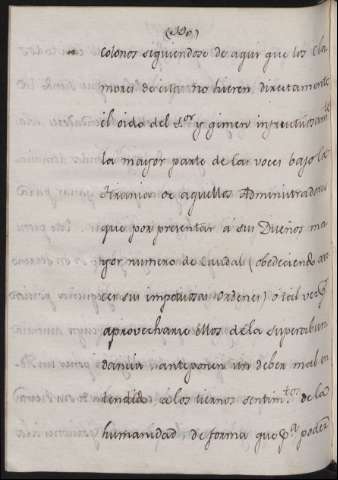 colonos siguiendose de aqui que los cla
mores de esta no hieren directamente
el oido del S.or y gimen infructuosam.te
la mayor parte de las voces bajo la
tirania de aquellos Administradores
que por presentar a sus Dueños ma
yor numero de Caudal (obedeciendo
ser sus impetuosas ordenes) o tal vez p.r
aprovecharse ellos de la superabun
dancia anteponen un deber mal en
tendido a los tiernos sentim.tos de la
humanidad, de forma que p.a poder